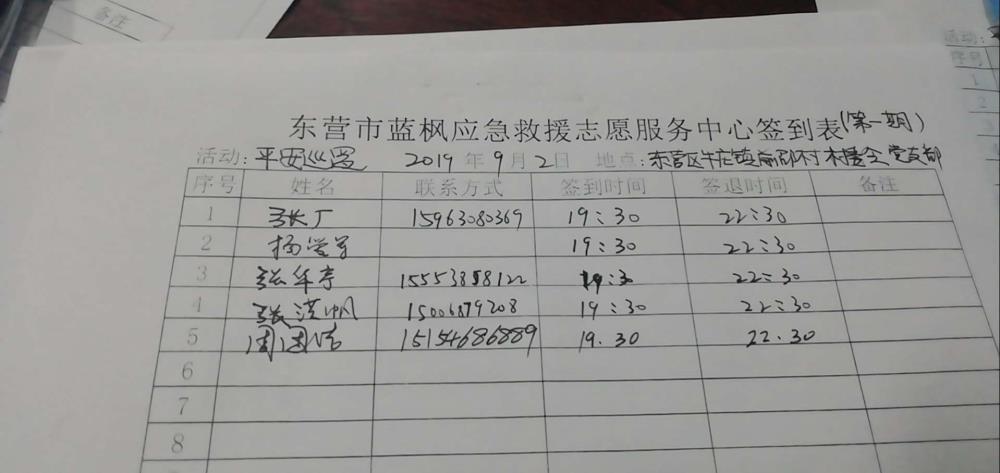 备注
活动:
序号
1
2
东营市蓝枫应急救援志愿服务中心签到表(第一期)
活动: 平安巡逻 2019年9月2日 地点: 东营区牛庄镇 村 党支部
序号 姓名 联系方式 签到时间 签退时间 备注
1 张广 15963080369 19:30 22:30
2 杨 19:30 22:30
3 张年亭 15553858122 19:3 22:30
4 张洪帆 15006879208 19:30 22:30
5 周国 15154686889 19.30 22.30
6
7
8